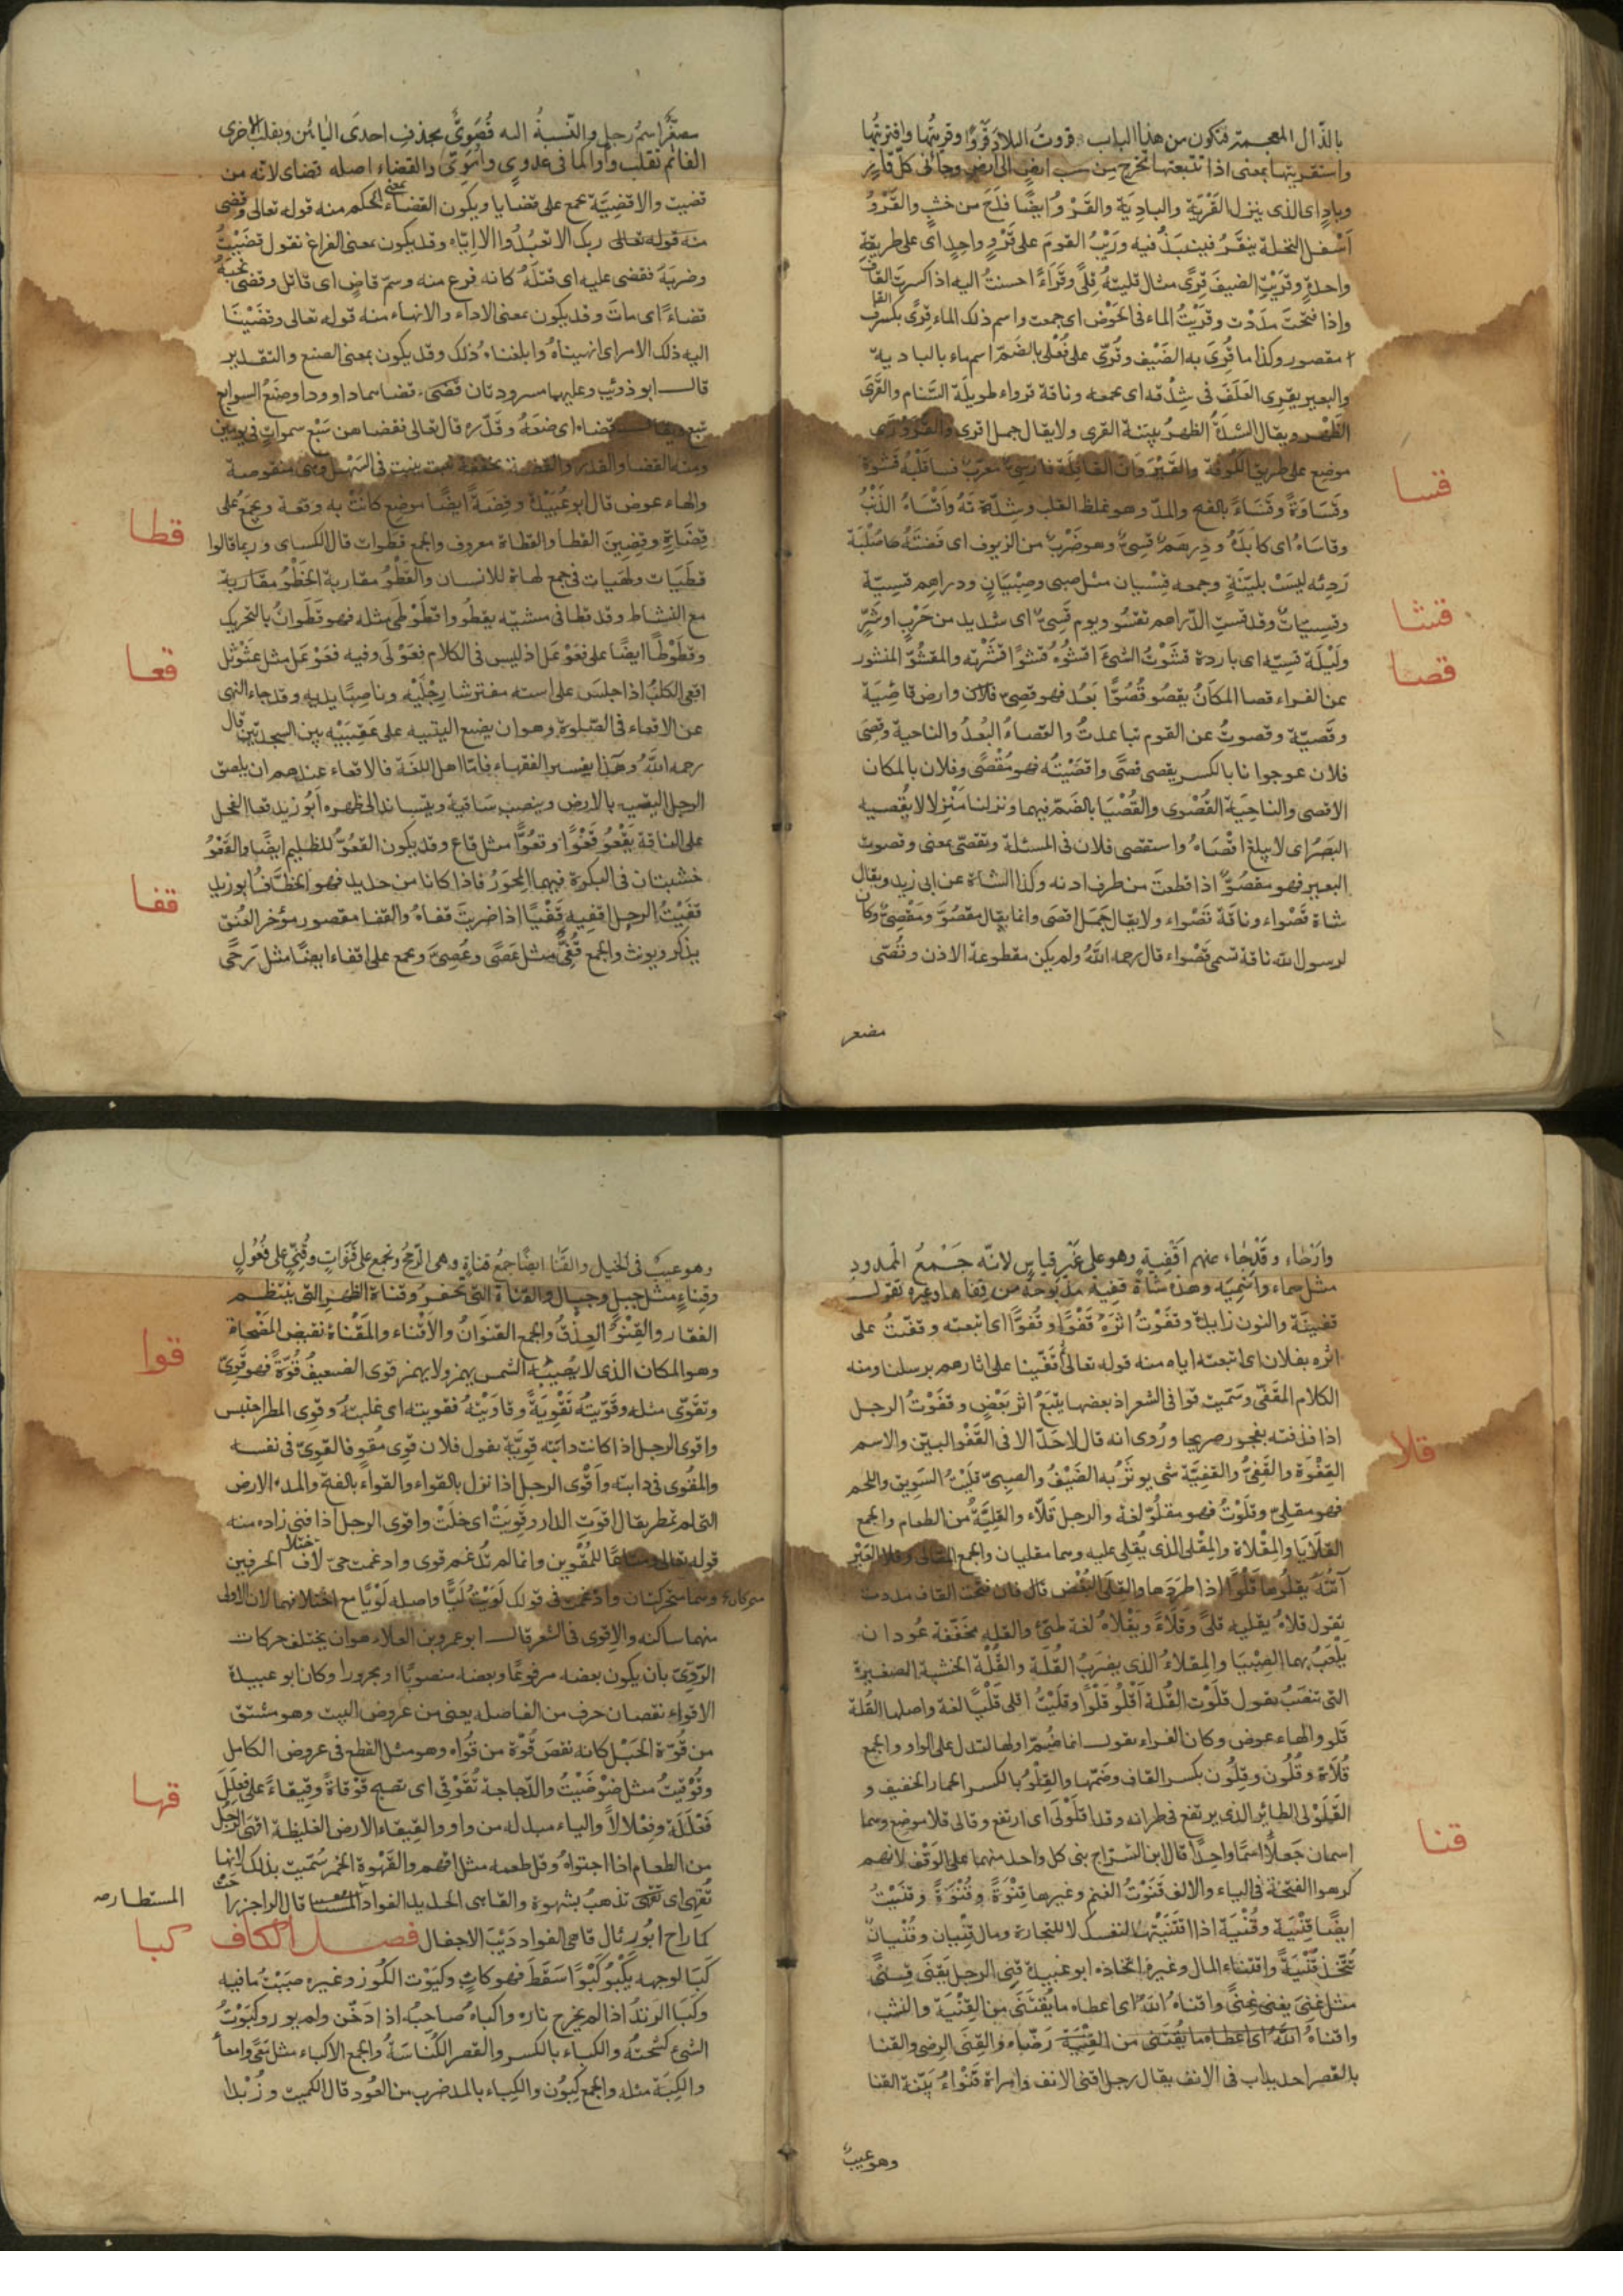 بالذال المعجمة فتكون من هذا الباب قروت البلاد قروا وقريتها واقتريتها
واستقريتها بمعنى اذا تتبعتها تخرج من ارض الى ارض وجائنى كل قارٍ
وبادٍ اى الذى ينزل القَرْيَة والبادِيَة والقَرْوُ ايضًا قدح من خشب والقَرْوُ
اَسْفل النخلة ينقَرُ فينبَذُ فيه ورَيْتُ القومَ على قَرْوٍ واحِدٍ اى على طريقةٍ
واحدةٍ وقَرَيْتُ الضيفَ قِرًى مثال قليتهُ قِلًى وقَرَاءً احسنتُ اليه اذا كسرتَ القاف
واذا فتحتَ مدَدْت وقَرَيْتُ الماء فى الحَوْض اى جمعت واسم ذلك الماء قِرًى بكسر القاف
مقصور وكذا ما قُرِىَ به الضَيْف وقُرّى على فُعْلى بالضَمّ اسم ماء بالبادية
والبعير يقرى العَلَفَ فى شِدْقه اى يجمعه وناقة قرواء طويلَة السَّنام والقَرَى
الظَّهر ويقال الشديدُ الظهرُ بيّنة القرى ولا يقال جمل اقرى والقَرَوْرَى
موضع على طريق الكُوفَة والقَيْرَوَان القافِلَة فارسِىٌ معرّب قسا قلبُه قَسْوَة
وقَسَاوَةً وقَسَاءً بالفتح والمدّ وهو غلظ القلب وشِدّتهُ واَقْسَاهُ الذَنْبُ
وقاسَاهُ اى كابَدَهُ ودِرهَمٌ قَسِىٌ وهو ضَرْبٌ من الزيوف اى فضّتهُ صُلْبَة
رَدِئَه ليسَتْ بليّنَةٍ وجمعه قِسْيان مثل صبى وصِبْيَانٍ ودراهم قسِيّة
وقسِيّاتٌ وقد قست الدّراهم تقسُو ويوم قَسِىٌ اى شديد من حَرْبٍ او شرٍّ
ولَيْلَة قسِيّه اى باردة قشَوْتُ الشىءَ اقشُوهُ قشوًا قشَرْته والمقشُوّ المنشور
عن الفراء قصا المكَانُ يقصُو قُصُوًّا بَعُد فهو قصِىّ فلان وارض قاصِيَة
وقَصيّة وقصوتُ عن القوم تباعدتُ والقصاءُ البُعدُ والناحية وقصِىَ
فلان عن جوارنا بالكسر يقصى قصًى واقصَيْتُه فهو مُقْصًى وفلان بالمكان
الاقصى والناحِيَة القُصْوى والقُصْيَا بالضَمّ فيهما ونزلنا مَنْزِلا لا يُقْصيه
البَصَرُ اى لا يبلغ اقْصَاهُ واستقصى فلان فى المسئلة وتقصّى بمعنى وقصوت
البعير فهو مقصُوٌّ اذا قطعت من طرف اذنه وكذا الشاة عن ابى زيد ويقال
شاة قَصْواء وناقَة قَصْواء ولا يقال جَمَل اقصَى وانما يقال مقصُوٌّ ومَقْصِىٌّ وكان
لرسول الله ناقة تسمى قَصْواء قال رحمه اللهُ ولم يكن مقطوعة الاذن وقُصَى
مصغر
قسا
قشا
قصا
مصغَّر اسمُ رجل والنّسبةُ اليه قُصَوىٌّ بحذف احدى اليائين وبقلب الاخرى
الفا ثم تقلب واوا كما فى عدوى واموىّ والقضاء اصله قضاى لانه من
قضيت والاقضِيَة جمع على قضايا ويكون القضاء بمعنى الحكم منه قوله تعالى وقضى
منه قوله تعالى ربك الا تعبُدُوا الا ايّاه وقد يكون بمعنى الفراغ تقول قضَيْتُ
وضربَهُ فقضى عليه اى قتلَهُ كانه فرغ منه وسمّ قاضٍ اى قاتل وقضى نحبَهُ
قضاءً اى ماتَ وقد يكون بمعنى الاداء والانهاء منه قوله تعالى وقضَيْنَا
اليه ذلك الامر اى انهيناهُ وابلغناه ذلك وقد يكون بمعنى الصنع والتقدير
قال ابو ذوئيب وعليهما مسرودتان قضى قضاهما داوود او صنَعُ السوابغ
تبع ويقال قضاه اى صنَعَهُ وقدّرهُ قال تعالى فقضاهن سَبْعَ سمواتٍ فى يومين
ومنه القضاء والقدر والقضة مخففة نبت ينبت فى السَهْل وهى منقوصة
والهاء عوض قال ابو عُبَيْدَة وقِضَةٌ ايضًا موضع كانَتْ به وقعة ويجمَع على
قِضَاةٍ وقِضِينَ القطا والقطاة معروف والجمع قطوات قال الكسائى وربما قالوا
قطَيَات ولهَيات فى جمع لهاة للانسان والقَطْوُ مقاربة الخَطْوُ مقاربة
مع النشاط وقد قطا فى مشيّه يقطُو واقطَوْطَى مثله فهو قَطَوانٌ بالتحريك
وقَطَوْطًا ايضًا على فعَوْعَل اذ ليس فى الكلام فعَوْلَى وفيه فعَوْعَل مثل عثوثل
اقعى الكلبُ اذا جلسَ على استه مفترشا رِجْلَيْه وناصِبًا يديه وقد جاء النهى
عن الاقعاء فى الصّلوة وهو ان يضع اليتيه على عَقِبَيْه بين السجدتين قال
رحمه اللهُ وهذا تفسير الفقهاء فامّا اهل اللغَة فالاقعاء عندهم ان يلصق
الرجل اليتيه بالارض وينصب سَاقيه ويتساند الى ظهره اَبُو زيد قعا الفحل
على الناقة يَقْعُو قَعْوًا وقعُوًّا مثل قاع وقد يكون القعُوّ للظليم ايضًا والقَعْوُ
خشبتان فى البكرة فيهما المِحوَرُ فاذا كانا من حديد فهو الخطّافُ ابو زيد
قفَيْتُ الرجل اقفيه قَفْيًا اذا ضربتَ قفاهُ والقفا مقصور مؤخر العُنق
يذكر ويونث والجمع قُفِىٌّ مثل عَصًى وعُصِىّ ويجمع على اقفاء ايضًا مثل رَحًى
قطا
قعا
قفا
وارْحاء وقَدْ جاء عنهم اَقفِيةٍ وهو على غَيْر قِياسٍ لانّه جَمْعُ الممدود
مثل سماء واسْمِيَه وهذه شاة قفِية مذبوحة من قفاها وغيره تقول
قفينَة والنون زايدة وقفَوْتُ اثرَهُ قَفْوًا وقُفُوًّا اى اتبعته وقفّيتُ على
اثره بفلان اى اتبعته اياه منه قوله تعالى ثم قَفّينا على اثارهم برسلنا ومنه
الكلام المقَفّى وسَمّيت قوافى الشعر اذ بعضها يَتْبَعُ اثر بَعْضٍ وقفَوْتُ الرجل
اذا قذفته بفجور صريحا ورُوى انه قال لا حَدّ الا فى القَفْو البيّن والاسم
القِفْوَة والقَفِىُّ والقفِيَّة شى يوثَرُ به الضَيْفُ والصبىّ قلَيْتُ السَويق واللحم
فهو مقلِىٌّ وقلَوْتُ فهو مقلُوّ لغة والرجل قَلّاء والقَلِيَّةُ من الطعام والجمع
القلَايَا والمِقْلاة والمِقْلى الذى يُقلى عليه وهما مقليان والجمع المقالى وقلا العَيْر
اُتُنَهُ يقلُوها قَلْوًا اذا طرَدَها والقلَى البُغْض قال فان فتحت القاف مددت
تقول قلاهُ يقليه قلىً وقَلَاءً ويَقْلَاهُ لغة طىّء والقله مخفّفة عُودان
يَلْعَبُ بهما الصِبْيَا والمِقلاءُ الذى يضرَبُ القُلَة والقُلَة الخشبة الصغيرة
التى تنصَبُ تقول قلَوْت القُلة اَقلُو قلْوًا وقلَيْتُ اقلى قلْيًا لغة واصلها القُلة
قلو والهاء عوض وكان الفراء يقول انما ضُمّ اولها لتدل على الواو والجمع
قُلَاةٌ وقُلُون وقِلُون بكسر القاف وضَمّها والقِلْوُ بالكسر الحمار الخفيف و
القلَوْلى الطاير الذى يرتفع فى طيرانه وقد اقلَوْلَى اى ارتفع وقالى قلا موضع وهما
اسمان جَعلا اسمًا واحِدًا قال ابن السّراج بنى كل واحد منهما على الوَقْف لانهم
كرهوا الفتحة فى الياء والالف قنَوْتُ الغنم وغيرها قِنْوَةً وقُنْوَةً وقنَيْتُ
ايضًا قِنْيَة وقُنْيَة اذا اقتَنَيْتَها لنفسك لا للتجارة ومال قِنْيان وقُنْيان
يُتَّخَذ قُنْيَةً واقتناء المال وغيره اتخاذه ابو عبيدة قنِى الرجل يَقْنَى قِنىً
مثل غنِىَ يغنى غِنىً واقناهُ اللهُ اى اعطاه ما يُقْتَنَى مِن القِنْيَة والنشب
واقناهُ اللهُ اى اعطاه ما يَقْتَنى من القِنْيَة رَضّاه والقِنَى الرضى والقنا
بالقصر احديداب فى الانف يقال رجل اقنى الانف وامراة قَنْواءُ بيّنة القنا
وهو عيبٌ
قلا
قنا
وهو عيبٌ فى الخيل والقَنا ايضًا جمعُ قناةٍ وهى الرّمحُ وتجمع على قَنَواتٍ وقُنِىٍّ على فُعُولٍ
وقِناءٍ مثل جبلٍ وجبالٍ والقناة التى تحفرُ وقناة الظهر التى ينتظم
الفقار والقِنْوُ العِذْقُ والجمع القنوَانُ والاَقْناء والمَقْناة نقيض المَضْحاة
وهو المكان الذى لا يُصيبُه الشمس يهمز ولا يهمز قوى الضعيفُ قُوّةً فهو قَوِىٌّ
وتقَوّى مثله وقَوّيتُهُ تَقْوِيَةً وقاوَيْتهُ فقويته اى غلبتهُ وقوِى المطر احتبس
واقوى الرجل اذا كانت دابّته قوِيَّة يقول فلان قوِى مُقوٍ فالقوِىّ فى نفسه
والمقوى فى دابته واَقْوى الرجل اذا نزل بالقواء والقواءُ بالفتح والمدّ الارض
التى لم تمطر يقال اقوَتِ الدار وقوِيَتْ اى خلَتْ واقوى الرجل اذا فنى زاده منه
قوله تعالى ومتاعًا للمُقْوين وانما لم تُدْغم قوى وادغمت حىّ لاختلاف الحرفين
متحركان وهما متحركتان وادغمت فى قولك لوَيْتُ لَيًّا واصله لَوْيًا مع اختلافهما لان الاولى
منهما ساكنه والاقوى فى الشعر قال ابو عمرو بن العلاء هو ان يختلف حركات
الرّوِىّ بان يكون بعضه مرفوعًا وبعضه منصوبًا او مجرورا وكان ابو عبيدة
الاقواء نقصان حرف من الفاصله يعنى من عروض البيت وهو مشتق
من قُوّة الحَبْل كانه نقصَ قُوّة من قُواه وهو مثل القطع فى عروض الكامل
وقَوْقَيتُ مثل ضوْضَيْتُ والدّجاجة تُقَوْقى اى تصيح قوْقاةً وقِيقاءً على فَعلَلَ
فَعْلَلَة وفِعْلالاً والياء مبدله من واو والقِيقاء الارض الغليظة اقهَى الرجُلُ
من الطعام اذا اجتواهُ وقل طعمه مثل اقهم والقَهْوة الخمر سُمّيت بذلك لانها
تُقْهى اى تذهبُ بشهوة والقاهى الحديد الفواد المستطار قال الراجز راحت
كما راح ابُو رئال قاهى الفواد دَيْبَ الاجفال فصل الكاف
كَبَا لوجهه يَكْبُو كَبْوًا سَقَطَ فهو كابٍ وكبَوْت الكُوز وغيره صبَبْتُ ما فيه
وكَبَا الزندُ اذا لم يخرج ناره واكباهُ صاحِبُه اذا دَخّن ولم يور وكبَوْتُ
الشىء كسَحتُه والكباء بالكسر والقصر الكُنَاسَةُ والجمع الاكباء مثل مِعًى وامعاً
والكِبَة مثله والجمع كِبُون والكِباء بالمد ضرب من العُود قال الكميت وزُبْدا
المستطار صه
قوا
قها
كبا